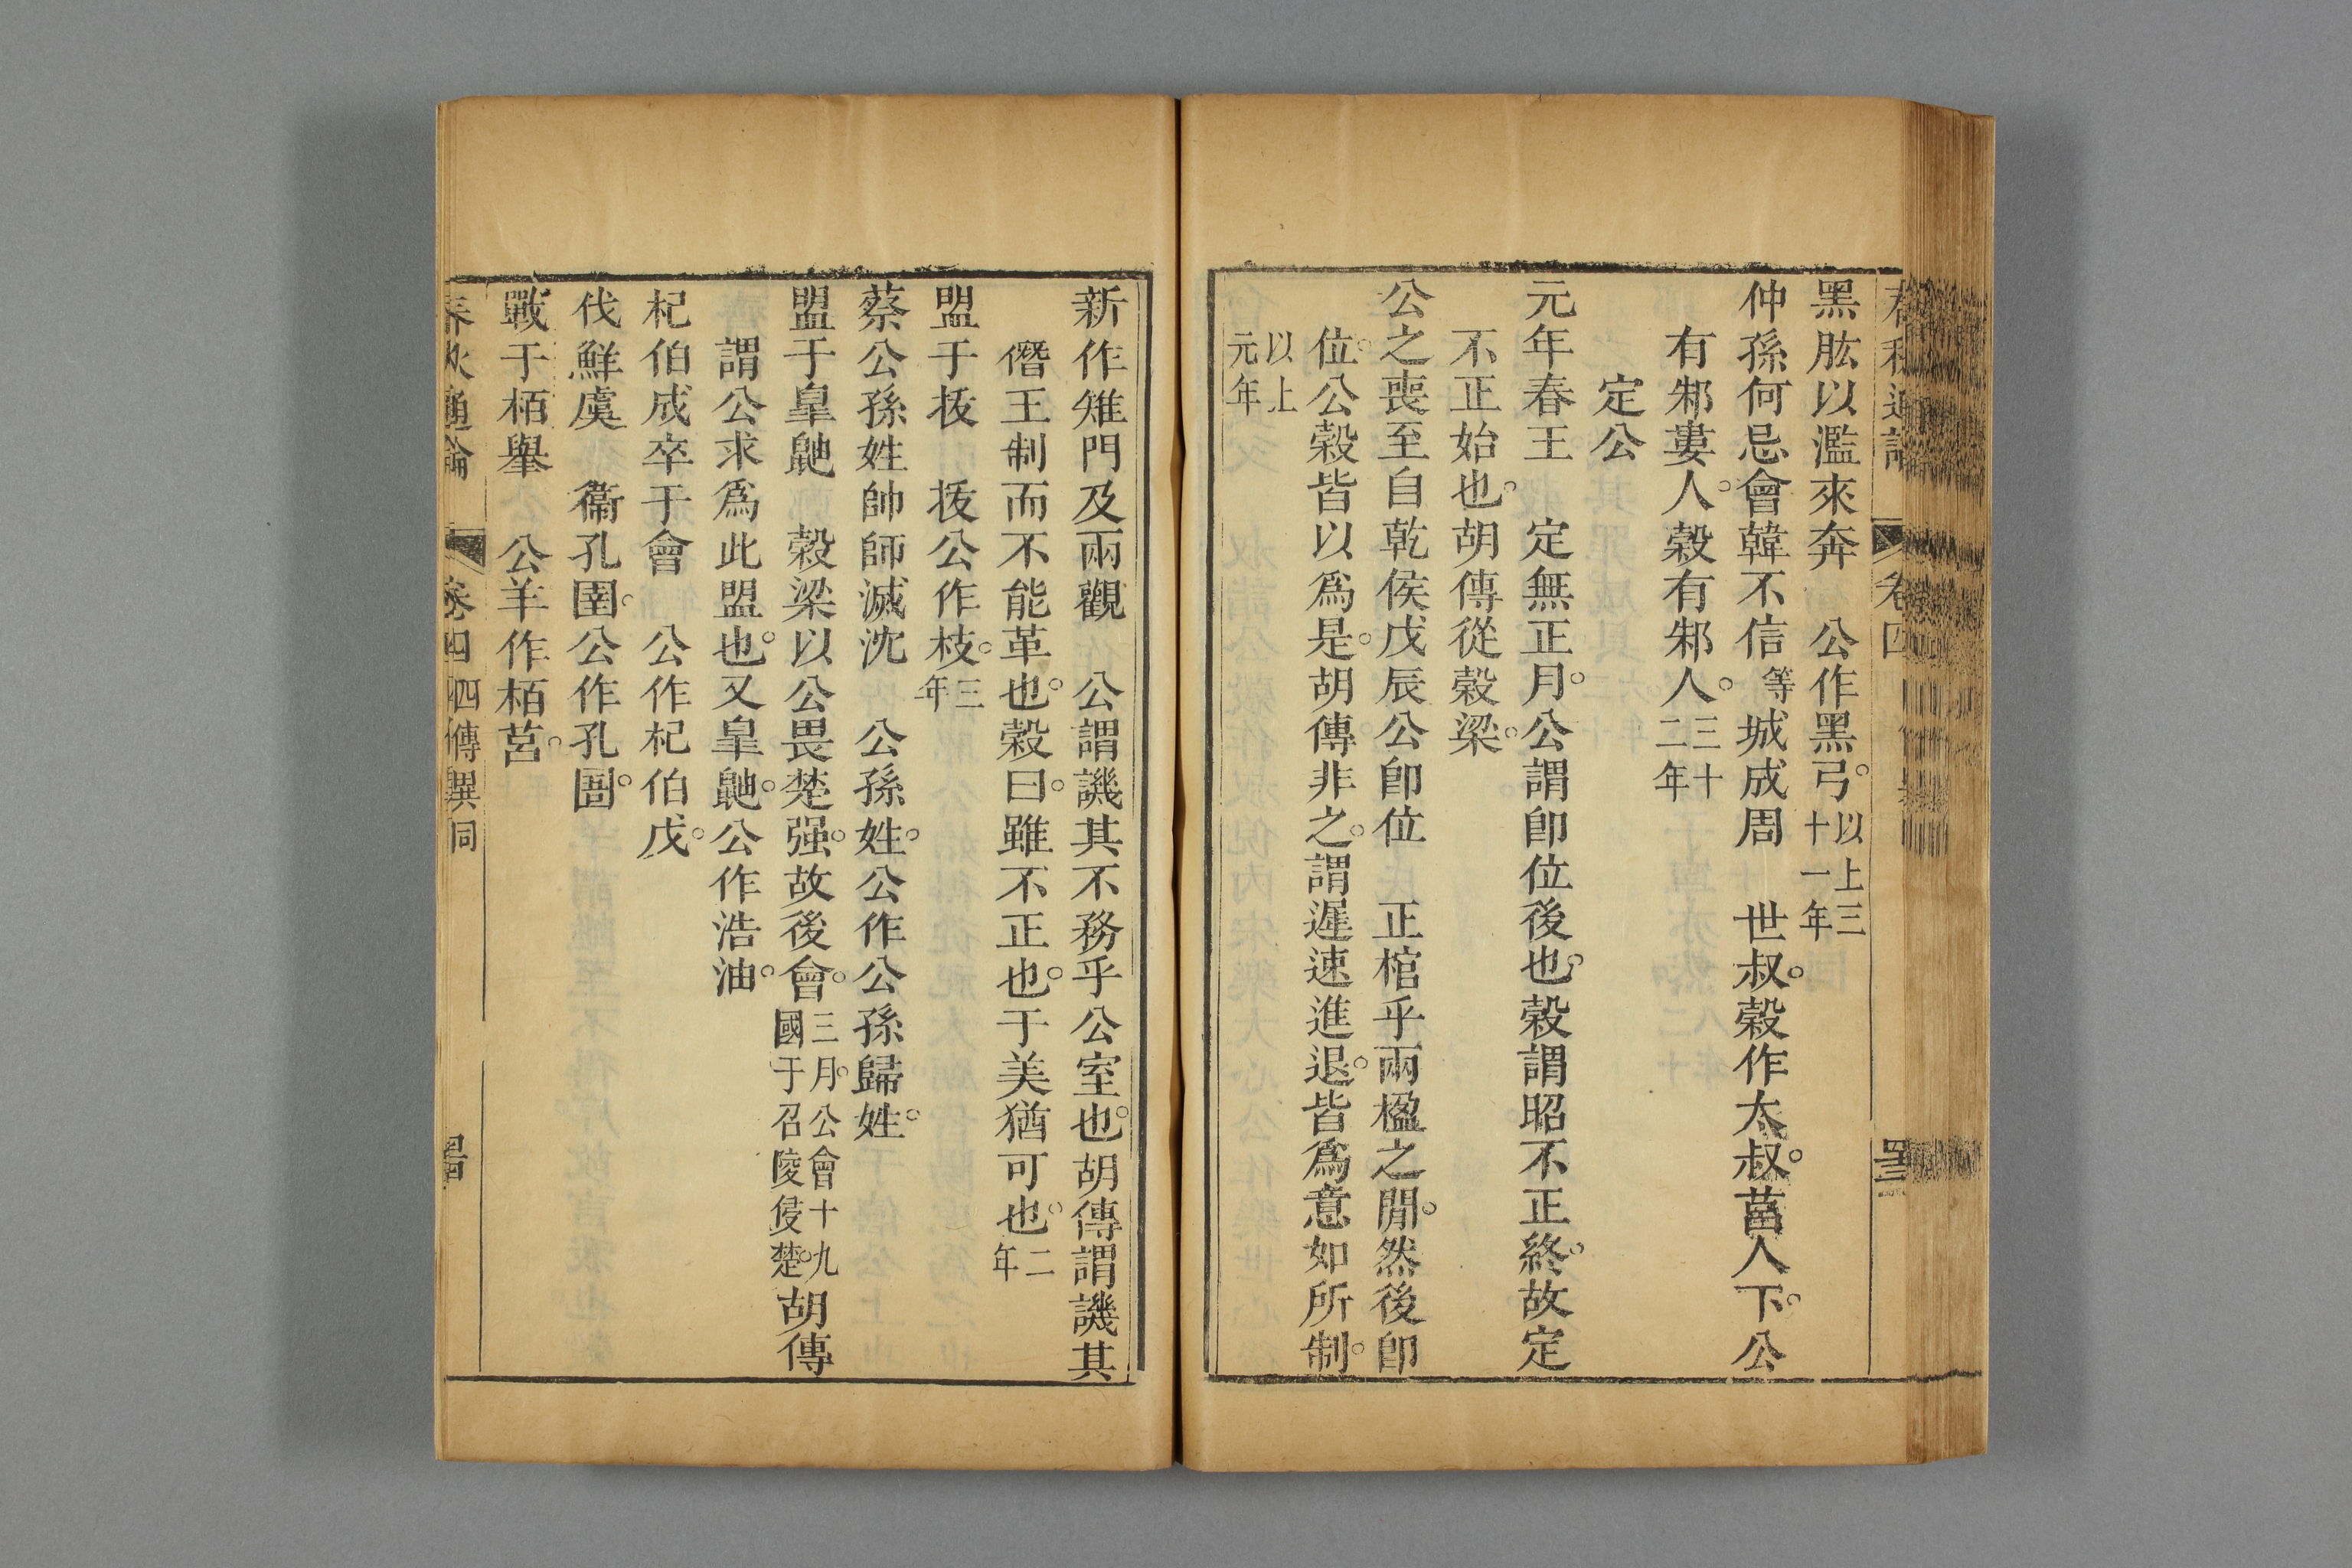 黑肱以濫來奔　公作黑弓。以上三十一年
仲孫何忌會韓不信等城成周　世叔。穀作太叔。莒人下。公
有邾婁人。穀有邾人。三十二年
定公
元年春王　定無正月。公謂卽位後也。穀謂昭不正終。故定
不正始也。胡傳從穀梁。
公之喪至自乾侯戊辰公卽位　正棺乎兩楹之閒。然後卽
位。公穀皆以爲是。胡傳非之。謂遲速進退。皆爲意如所制。
以上元年
新作雉門及兩觀　公謂譏其不務乎公室也。胡傳謂譏其
僭王制而不能革也。穀曰。雖不正也。于美猶可也。二年
盟于拔　拔公作枝。三年
蔡公孫姓帥師滅沈　公孫姓。公作公孫歸姓。
盟于皐鼬　穀梁以公畏楚强。故後會。三月。公會十九國于召陵侵楚。胡傳
謂公求爲此盟也。又皐鼬。公作浩油。
杞伯成卒于會　公作杞伯戊。
伐鮮虞　衞孔圉。公作孔圄。
戰于栢舉　公羊作栢莒。
春秋通論　卷四　四傳異同